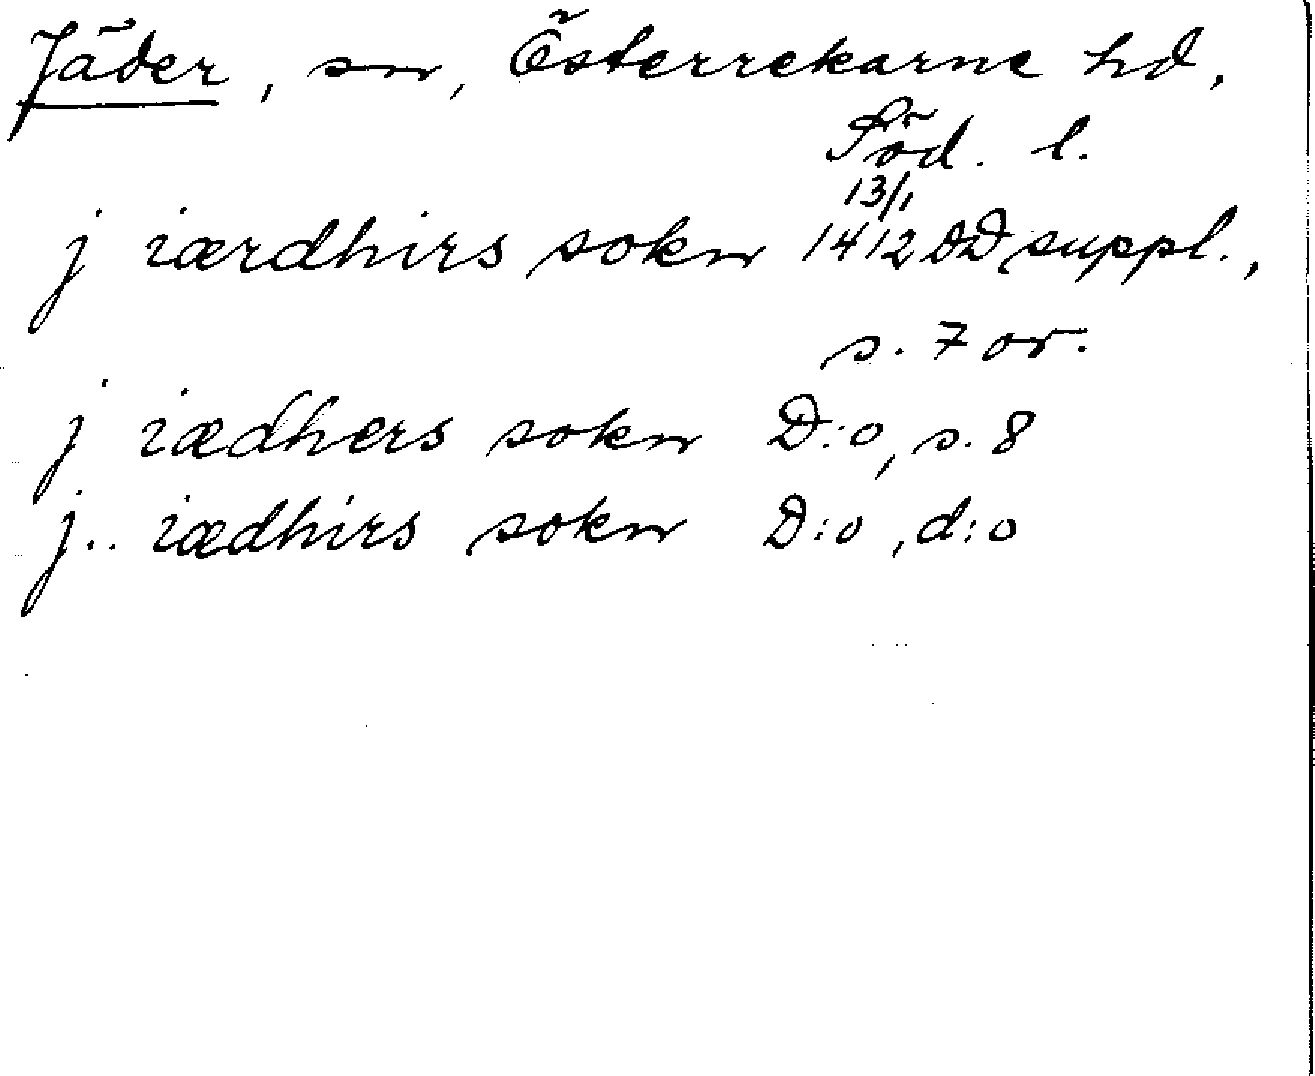 Jäder, sn, Österrekarne hd,
Söd. l.
13/1
j iærdhirs sokn 1412 DD suppl.,
s. 7 or.
j iædhers sokn D:o, s. 8
j.. iædhirs sokn D:o, d:o